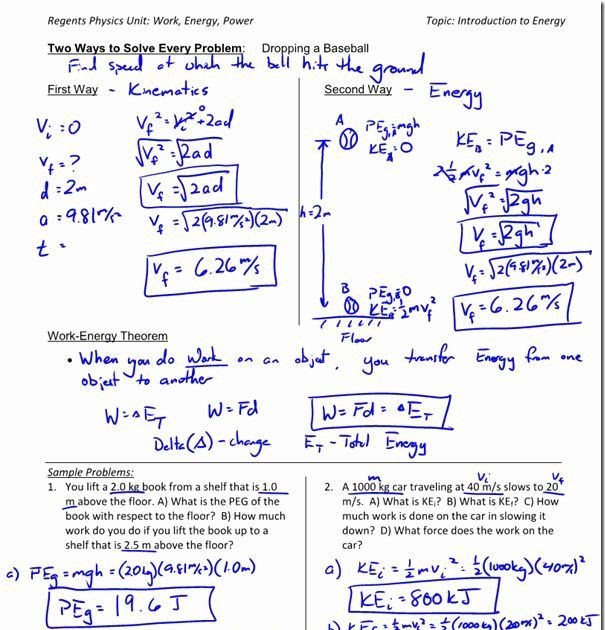 Regents Physics Unit: Work, Energy, Power
Topic: Introduction to Energy
Two Ways to Solve Every Problem: Dropping a Baseball
Find speed at which the ball hits the ground
First Way - Kinematics
Vi = 0
Vf = ?
d = 2m
a = 9.81 m/s²
t =
Vf² = Vi² + 2ad
0
√Vf² = √2ad
Vf = √2ad
Vf = √2(9.81 m/s²)(2m)
Vf = 6.26 m/s
Second Way - Energy
A
PEg,A = mgh
KEA = 0
h=2m
B
PEg,B = 0
KEB = ½mvf²
Floor
KEB = PEg,A
2 ½ mvf² = mgh·2
√Vf² = √2gh
Vf = √2gh
Vf = √2(9.81 m/s²)(2m)
Vf = 6.26 m/s
Work-Energy Theorem
• When you do Work on an object, you transfer Energy from one
object to another
W = ΔET W = Fd W = Fd = ΔET
Delta (Δ) - change ET - Total Energy
Sample Problems:
1. You lift a 2.0 kg book from a shelf that is 1.0
m above the floor. A) What is the PEG of the
book with respect to the floor? B) How much
work do you do if you lift the book up to a
shelf that is 2.5 m above the floor?
a) PEg = mgh = (2.0kg)(9.81 m/s²)(1.0m)
PEg = 19.6 J
m Vi Vf
2. A 1000 kg car traveling at 40 m/s slows to 20
m/s. A) What is KEi? B) What is KEf? C) How
much work is done on the car in slowing it
down? D) What force does the work on the
car?
a) KEi = ½mvi² = ½(1000kg)(40 m/s)²
KEi = 800 kJ
b) KEf = ½mvf² = ½(1000kg)(20 m/s)² = 200 kJ